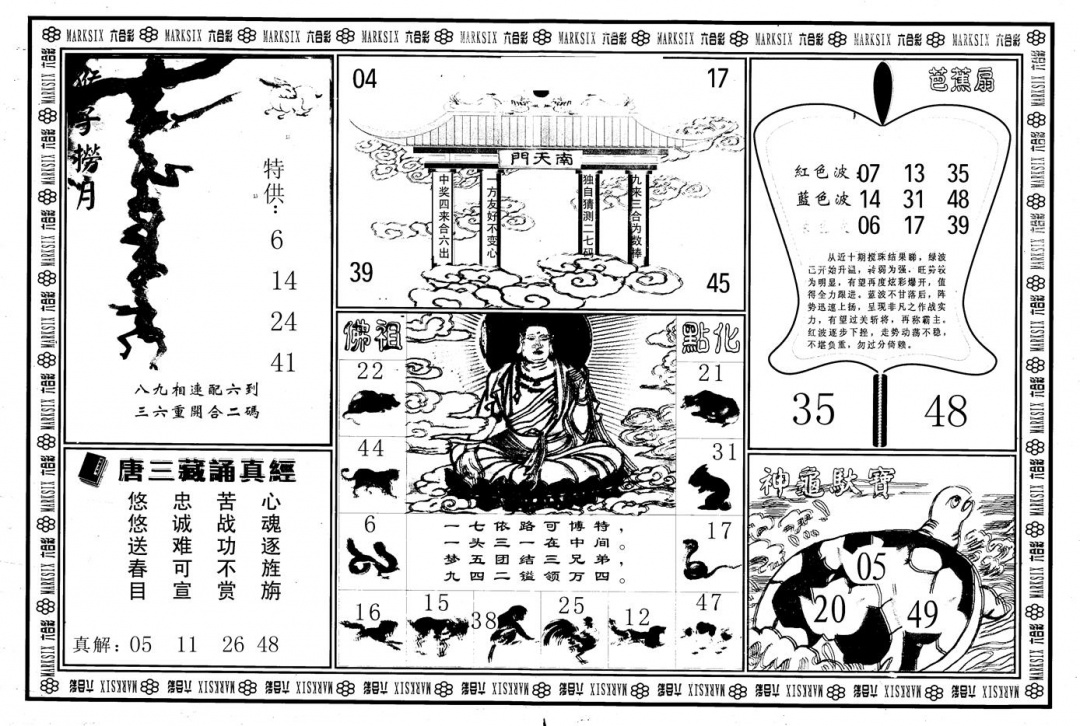 MARKSIX 六合彩 MARKSIX 六合彩 MARKSIX 六合彩 MARKSIX 六合彩 MARKSIX 六合彩 MARKSIX 六合彩 MARKSIX 六合彩 MARKSIX 六合彩 MARKSIX 六合彩 MARKSIX 六合彩
猴子捞月
特供：
6
14
24
41
八九相連配六到
三六重開合二碼
04
17
門天南
中奖四来合六出
一方友好不变心
独自猜测二七码
九来三合为数棒
39
45
芭蕉扇
紅色波：07 13 35
藍色波 14 31 48
06 17 39
从近十期搅珠结果睇，绿波
已开始升温，转弱为强，旺势较
为明显，有望再度炫彩爆开，值
得全力跟进。蓝波不甘落后，阵
势迅速上扬，呈现非凡之作战实
力，有望过关斩将，再称霸主。
红波逐步下挫，走势动荡不稳，
不堪负重，勿过分倚赖。
35
48
佛祖
點化
22
21
44
31
6
17
一七依路可博特，
一头三一在中间。
梦五团结三兄弟，
九四二镒领万四。
16
15
38
25
12
47
唐三藏誦真經
心魂逐旌旃
苦战功不赏
忠诚难可宣
悠悠送春目
真解：05 11 26 48
神龜馱寶
05
20
49